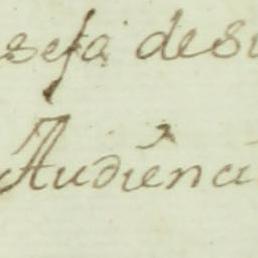 sefa desu
Audienci